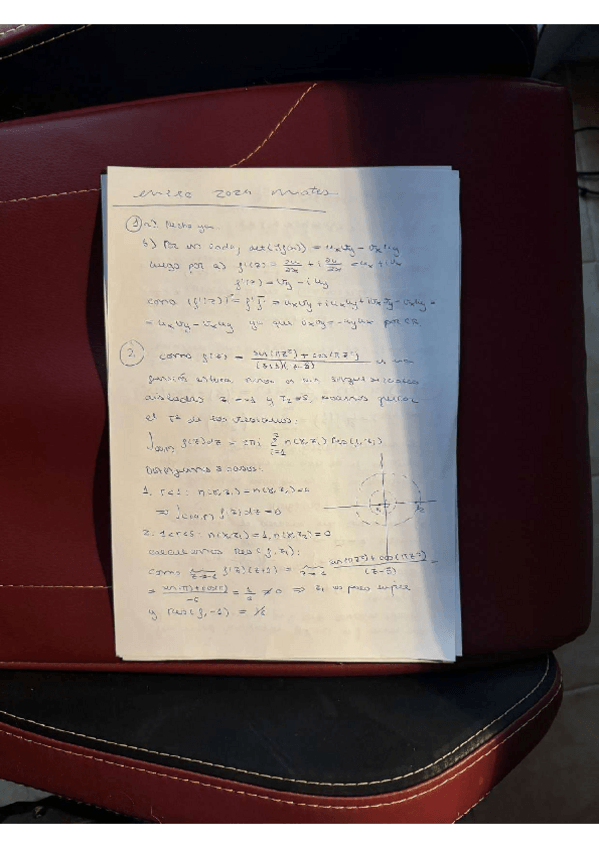 enero 2024 mates
1 a) Hecho ya.
b) Por un lado, det(Jf(x)) = uₓv_y − vₓu_y
luego por a) f'(z) = ∂u/∂x + i ∂v/∂x = uₓ + ivₓ
f'(z) = v_y − i u_y
como |f'(z)|² = f' f̄' =
= uₓv_y − vₓu_y ya que por CR
2. como f(z) = (sen(πz²) + cos(πz²))/((z+1)(z-5)) es una
función salvo en sus singularidades
aisladas z₁ = -1 y z₂ = 5, podemos
el Tª de los residuos:
∫ f(z)dz = 2πi Σ n(γ, zᵢ) Res(f, zᵢ)
i=1
Distinguimos 3 casos:
1. r<1: n(γ, z₁) = n(γ, z₂) = 0
⇒ ∫ f(z) dz = 0
2. 1<r<5: n(γ, z₁) = 1, n(γ, z₂) = 0
calculemos Res(f, z₁):
como lim z→-1 f(z)(z+1) = lim z→-1 (sen(πz²) + cos(πz²))/(z-5) =
= (sen(π) + cos(π))/-6 = 1/6 ≠ 0 ⇒ z₁ es polo simple
y Res(f, -1) = 1/6